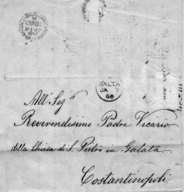 MALTA
JA
68
All Sig.
Reverendissimo Padre Vicario
alla Chiesa di S. Pietro in Galata
Costantinopoli